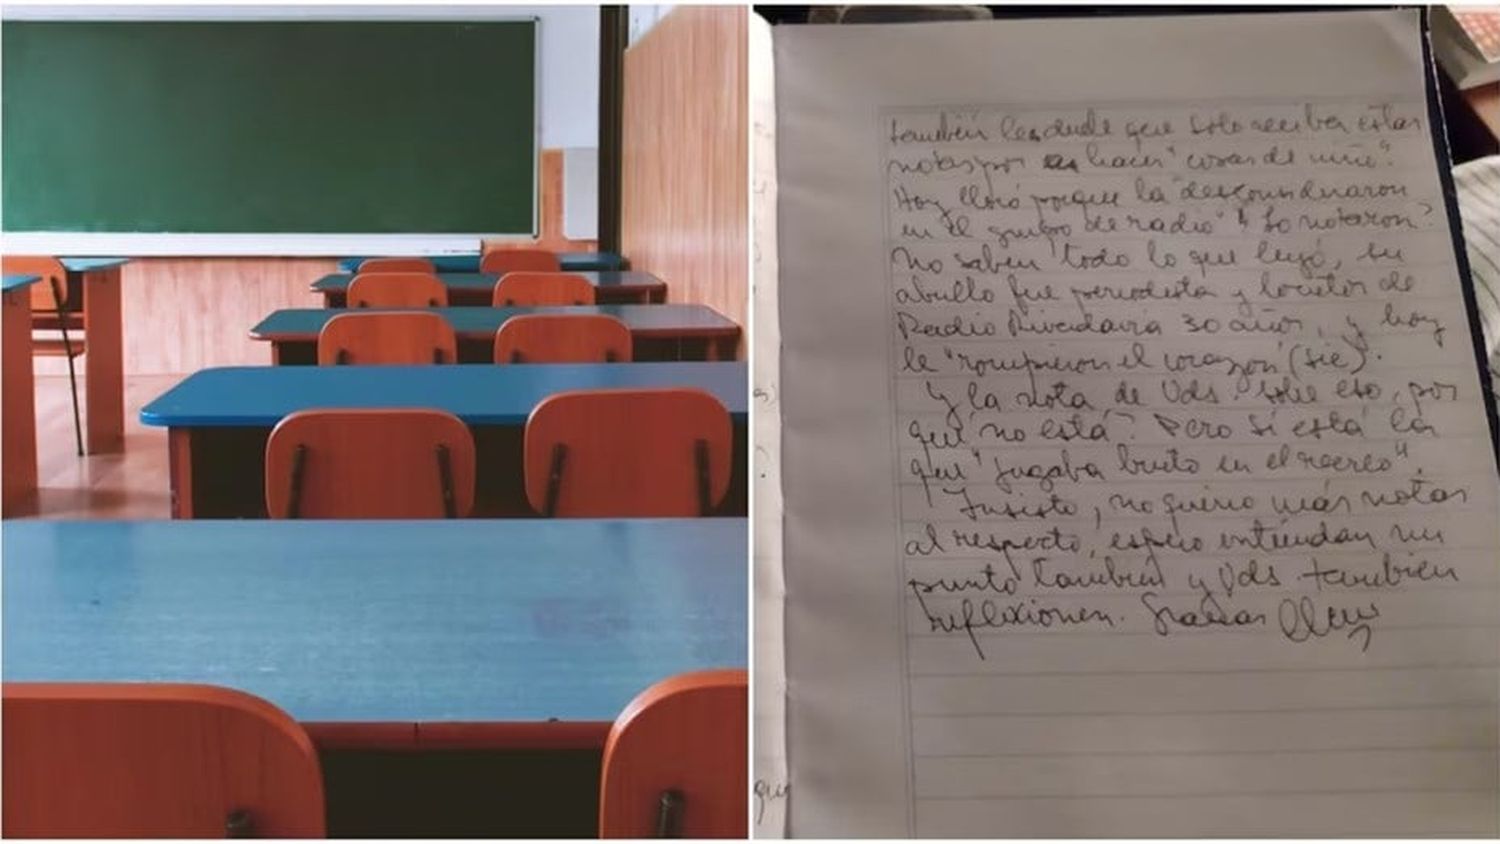 también les duele que solo reciba estas
notas por hacer "cosas de niñe".
Hoy lloró porque la "desconsideraron
en el grupo de radio" ¿Lo notaron?
No saben todo lo que lloró, su
abuelo fue periodista y locutor de
Radio Rivadavia 30 años, y hoy
le "rompieron el corazón (sic)".
Y la nota de Uds. sobre eso, por
qué no está? Pero sí está la
que "jugaba bruto en el recreo".
Insisto, no quiero más notas
al respecto, espero entiendan mi
punto también y Uds. también
reflexionen. Gracias